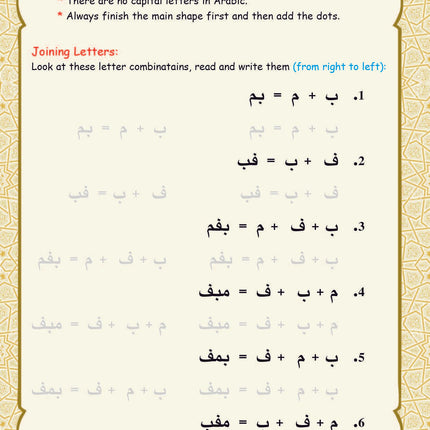 * There are no capital letters in Arabic.
* Always finish the main shape first and then add the dots.
Joining Letters:
Look at these letter combinatains, read and write them (from right to left):
1. ب + م = بم
ب + م = بم ب + م = بم
2. ف + ب = فب
ف + ب = فب ف + ب = فب
3. ب + ف + م = بفم
ب + ف + م = بفم ب + ف + م = بفم
4. م + ب + ف = مبف
م + ب + ف = مبف م + ب + ف = مبف
5. ب + م + ف = بمف
ب + م + ف = بمف ب + م + ف = بمف
6. م + ف + ب = مفب